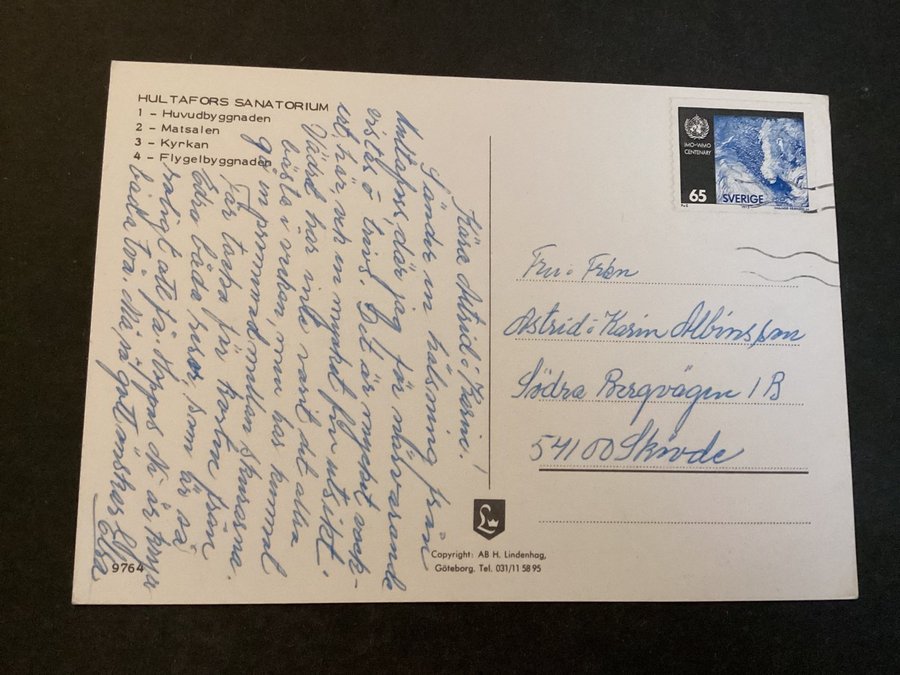 HULTAFORS SANATORIUM
1 - Huvudbyggnaden
2 - Matsalen
3 - Kyrkan
4 - Flygelbyggnaden
Kära Astrid o Karin!
Sänder en hälsning från
Hultafors, där jag för närvarande
vistas ö trivs. Det är mycket vack-
ert här, och en mycket fin utsikt.
Vädret har inte varit det allra
bästa i veckan, men has kommit
gån emellan skurarna.
Får tacka för korten från
Edra båda resor, som är så
roligt att få. Hoppas Ni är krya
båda två. Må så gott önskar
Elsa
9764
IMO-WMO
CENTENARY
65
SVERIGE
Fru o Frkn
Astrid o Karin Albinsson
Södra Bergvägen 1 B
541 00 Skövde
Copyright: AB H. Lindenhag,
Göteborg. Tel. 031/11 58 95